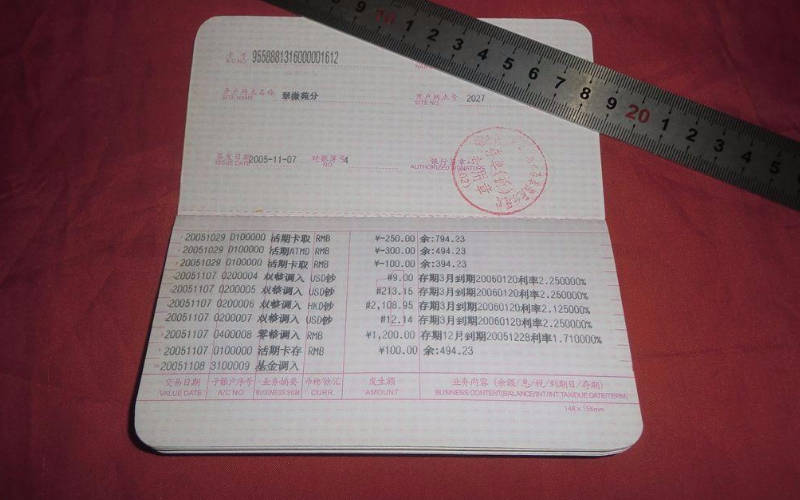 9 10 1 2 3 4 5 6 7 8 9 20 1 2 3 4 5
卡号 9558881316000001612
A/C NO.
开户网点名称 翠微苑分 开户网点号 2027
SITE NAME SITE NO.
签发日期 2005-11-07 4 银行签章
ISSUE DATE NO. AUTHORIZED SIGNATURE
20051029 0100000 活期卡取 RMB ¥-250.00 余:794.23
20051029 0100000 活期ATMD RMB ¥-300.00 余:494.23
20051029 0100000 活期卡取 RMB ¥-100.00 余:394.23
20051107 0200004 双整调入 USD钞 #9.00 存期3月到期20060120利率2.250000%
20051107 0200005 双整调入 USD钞 #213.15 存期3月到期20060120利率2.250000%
20051107 0200006 双整调入 HKD钞 #2,108.95 存期3月到期20060120利率2.125000%
20051107 0200007 双整调入 USD钞 #12.14 存期3月到期20060120利率2.250000%
20051107 0400008 零整调入 RMB ¥1,200.00 存期12月到期20051228利率1.710000%
20051107 0100000 活期卡存 RMB ¥100.00 余:494.23
20051108 3100009 基金调入
交易日期 子账户序号 业务摘要 币种/钞/汇 发生额 业务内容 (余额/息/税/到期日/存期)
VALUE DATE A/C NO. BUSINESS SUM CURR. AMOUNT BUSINESS CONTENT(BALANCE/INT/INT TAX/DUE DATE/TERM)